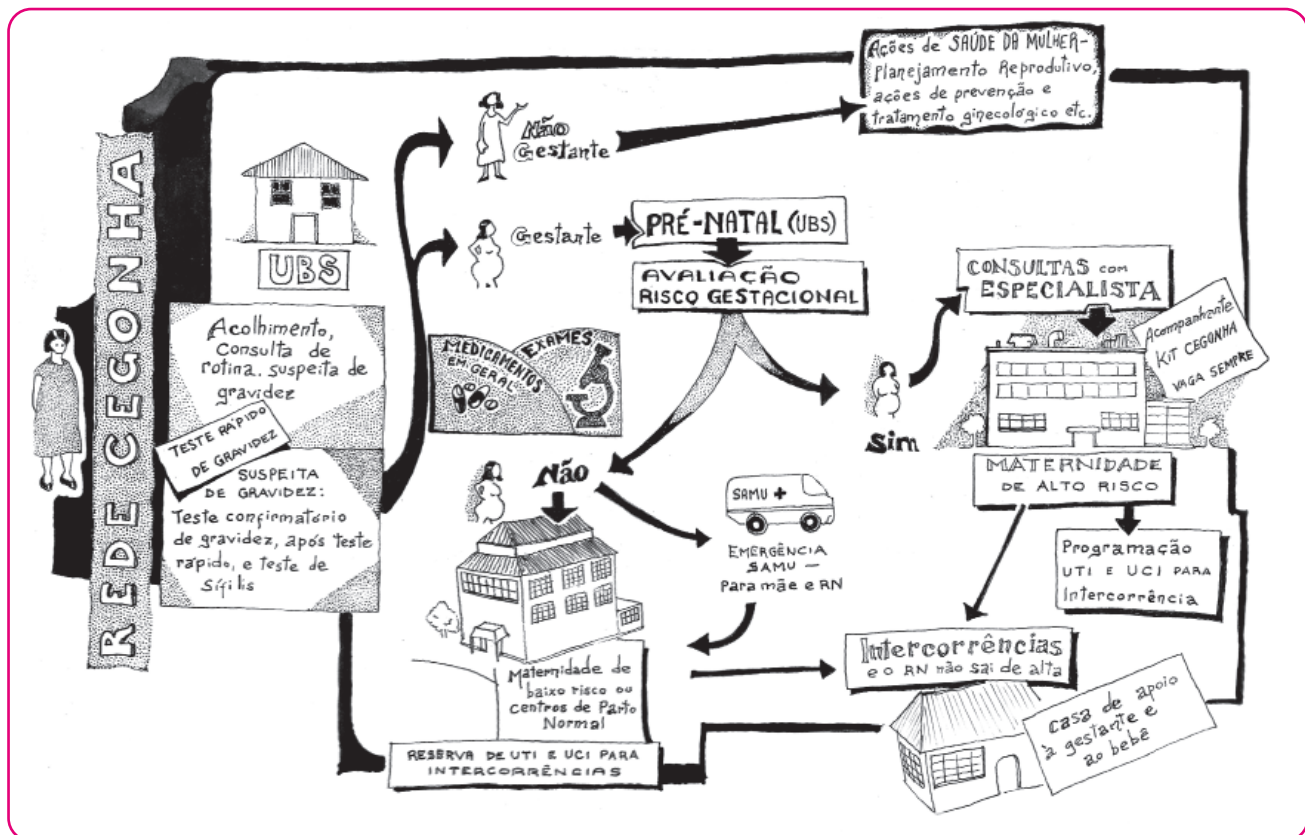 REDE CEGONHA
UBS
Acolhimento,
Consulta de
rotina. suspeita de
gravidez
TESTE RÁPIDO
DE GRAVIDEZ
SUSPEITA
DE GRAVIDEZ:
Teste confirmatório
de gravidez, após teste
rápido, e teste de
Sífilis
Não
Gestante
Ações de SAÚDE DA MULHER-
Planejamento Reprodutivo,
ações de prevenção e
tratamento ginecológico etc.
Gestante
PRÉ-NATAL (UBS)
AVALIAÇÃO
RISCO GESTACIONAL
MEDICAMENTOS
EM GERAL
EXAMES
Sim
CONSULTAS com
ESPECIALISTA
Acompanhante
KIT CEGONHA
VAGA SEMPRE
MATERNIDADE
DE ALTO RISCO
Programação
UTI E UCI PARA
Intercorrência
Não
SAMU +
EMERGÊNCIA
SAMU —
Para mãe e RN
Maternidade de
baixo risco ou
centros de Parto
Normal
RESERVA DE UTI E UCI PARA
INTERCORRÊNCIAS
Intercorrências
e o RN não sai de alta
casa de apoio
à gestante e
ao bebê